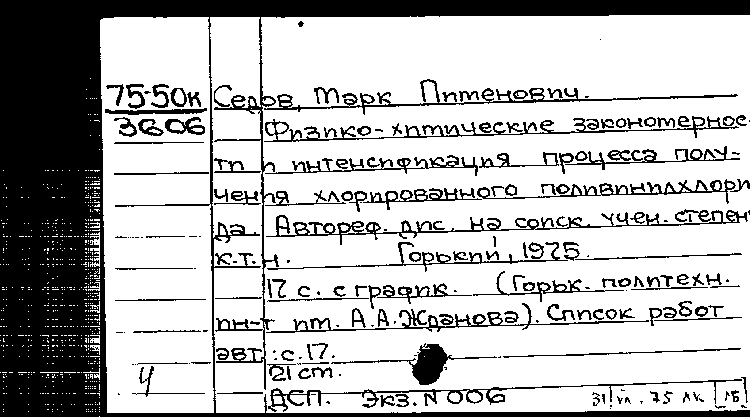 75-50к Седов, Марк Пименович.
3606 Физико-химические закономернос-
ти и интенсификация процесса полу-
чения хлорированного поливинилхлори
да. Автореф. дис. на соиск. учен. степен
к.т.н. Горький, 1975.
17 с. с график. (Горьк. политехн.
ин-т им. А.А. Жданова). Список работ
авт.: с.17.
21 см.
ДСП. Экз. N 006 31/VII.75 ЛК